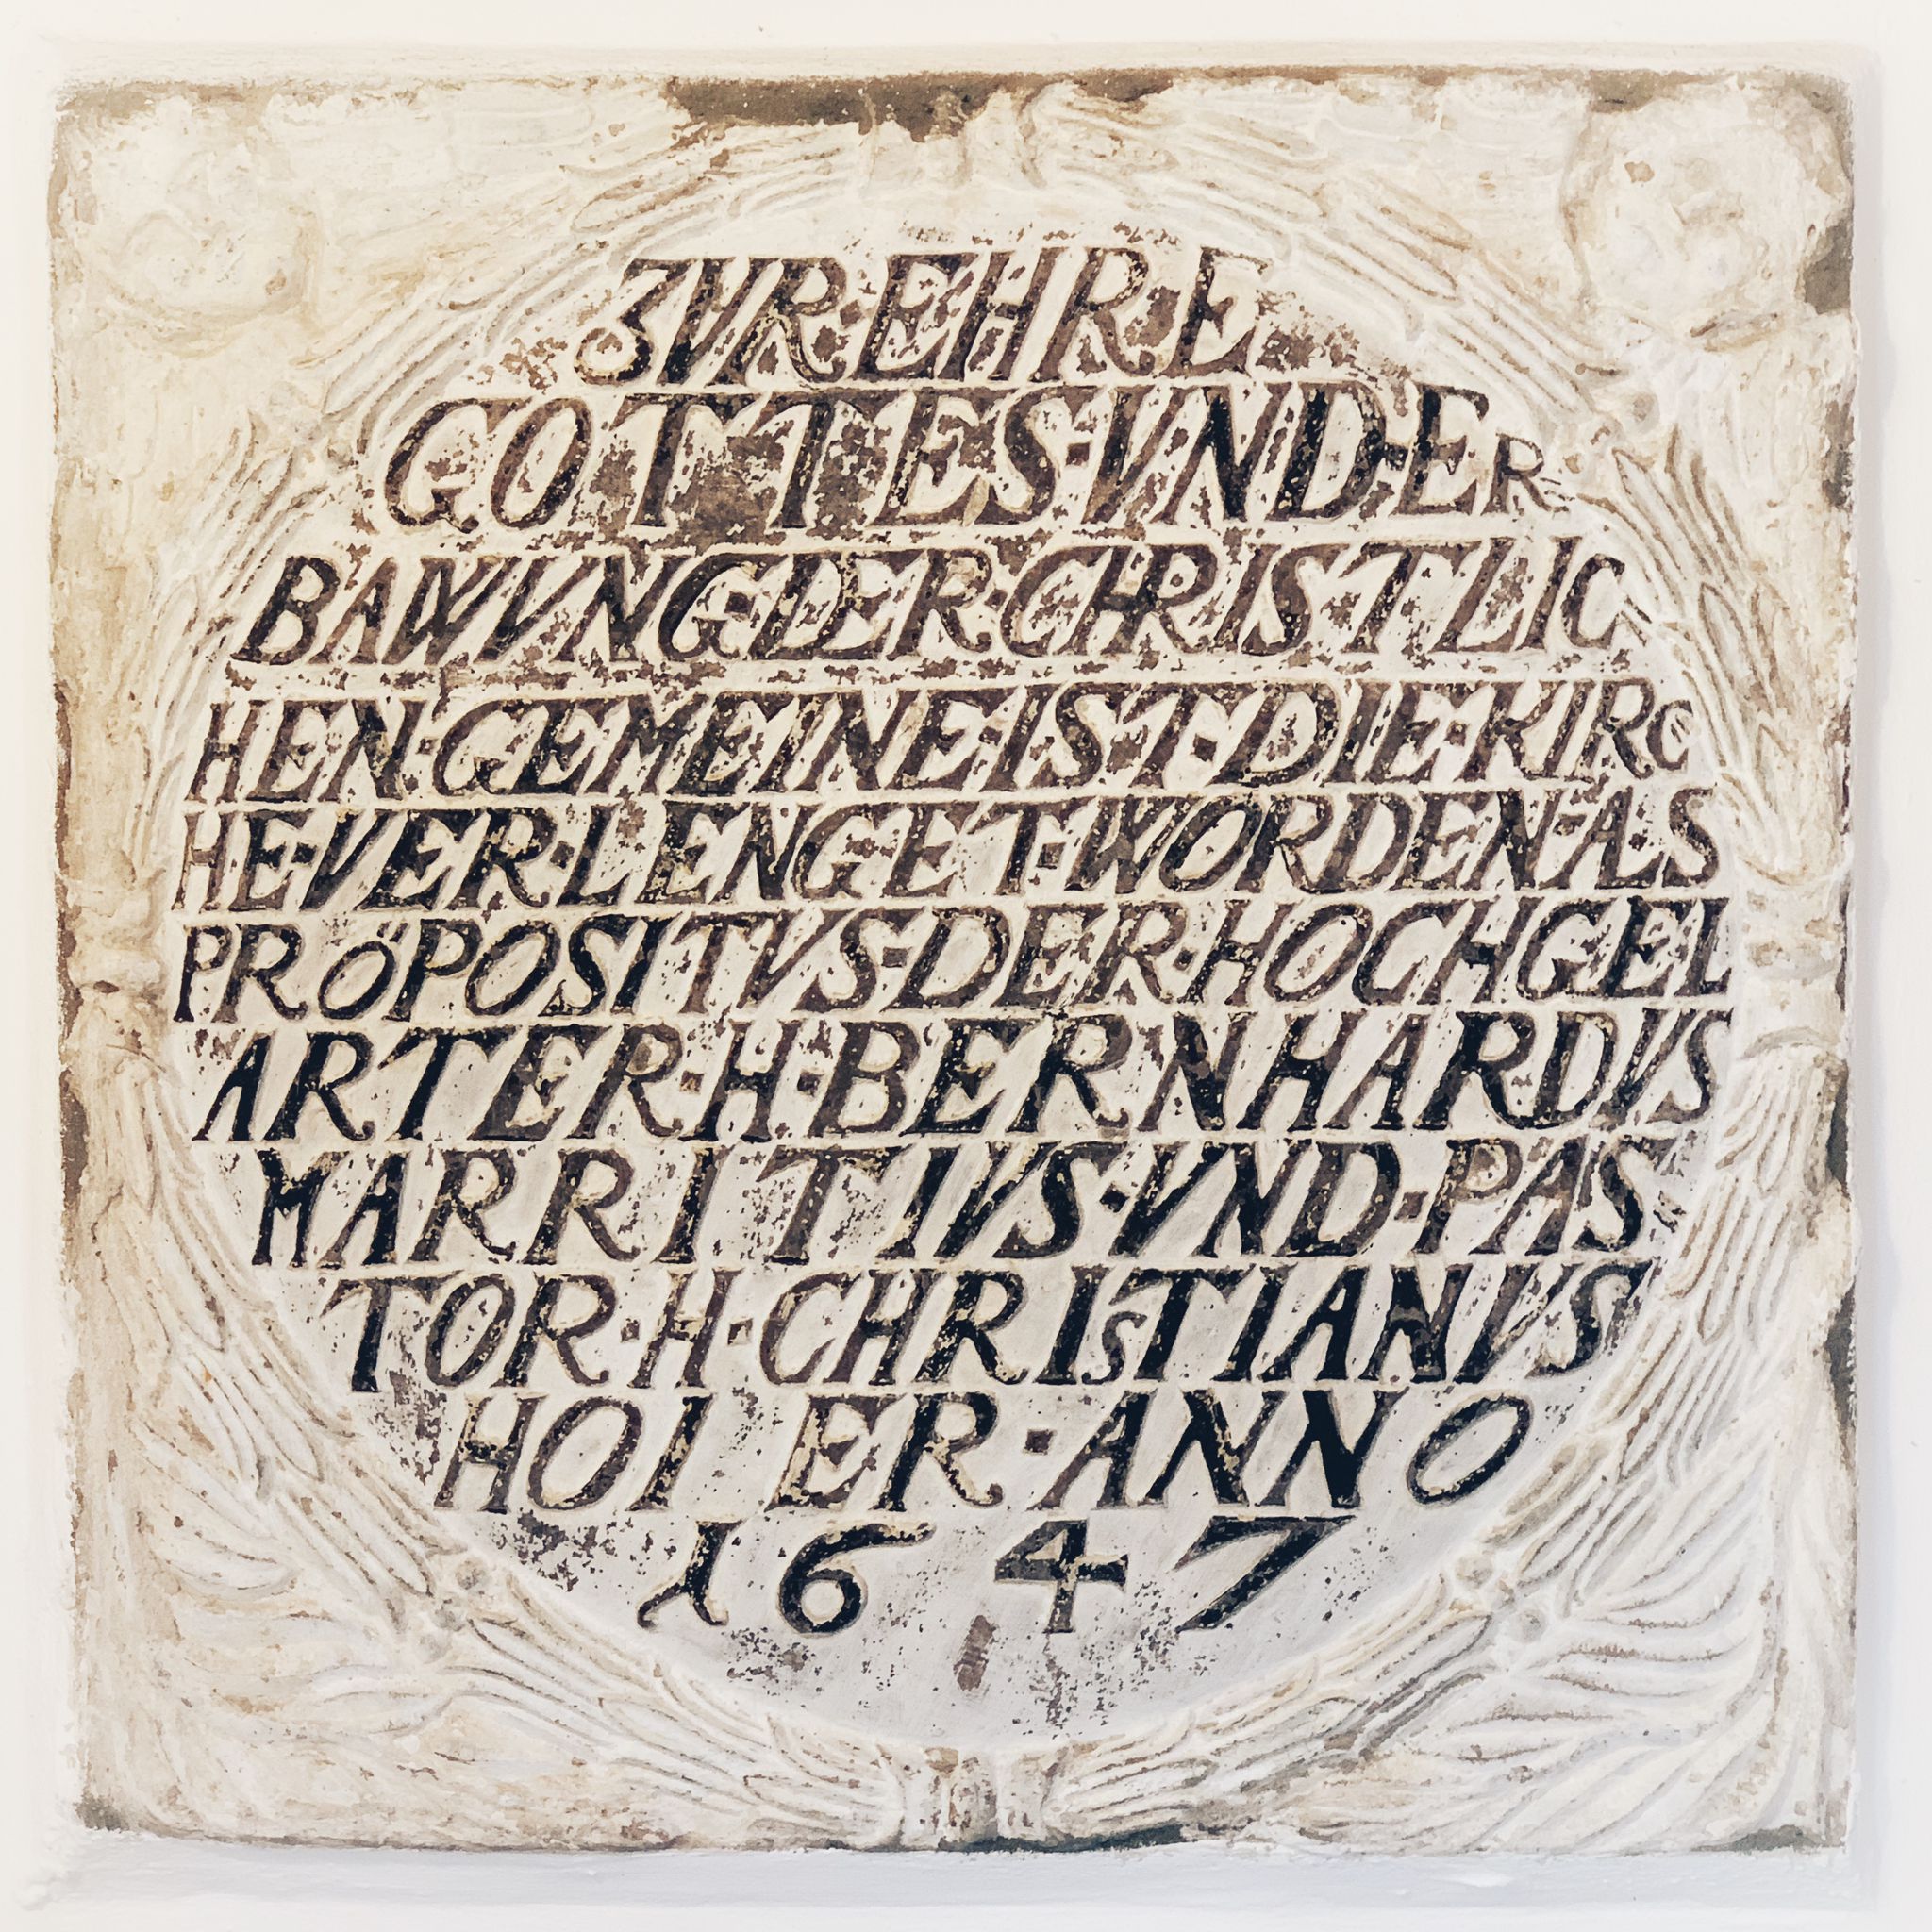 ZVR·EHR·E
GOTTES·VND·ER
BAWVNG·DER·CHRISTLIC
HEN·GEMEINE·IST·DIE·KIRC
HE·VER·LENGET·WORDEN·ALS
PRÖPOSITVS·DER·HOCHGEL
ARTER·H·BERNHARDVS
MARRITIVS·VND·PAS
TOR·H·CHRISTIANVS
HOIER·ANNO
1647